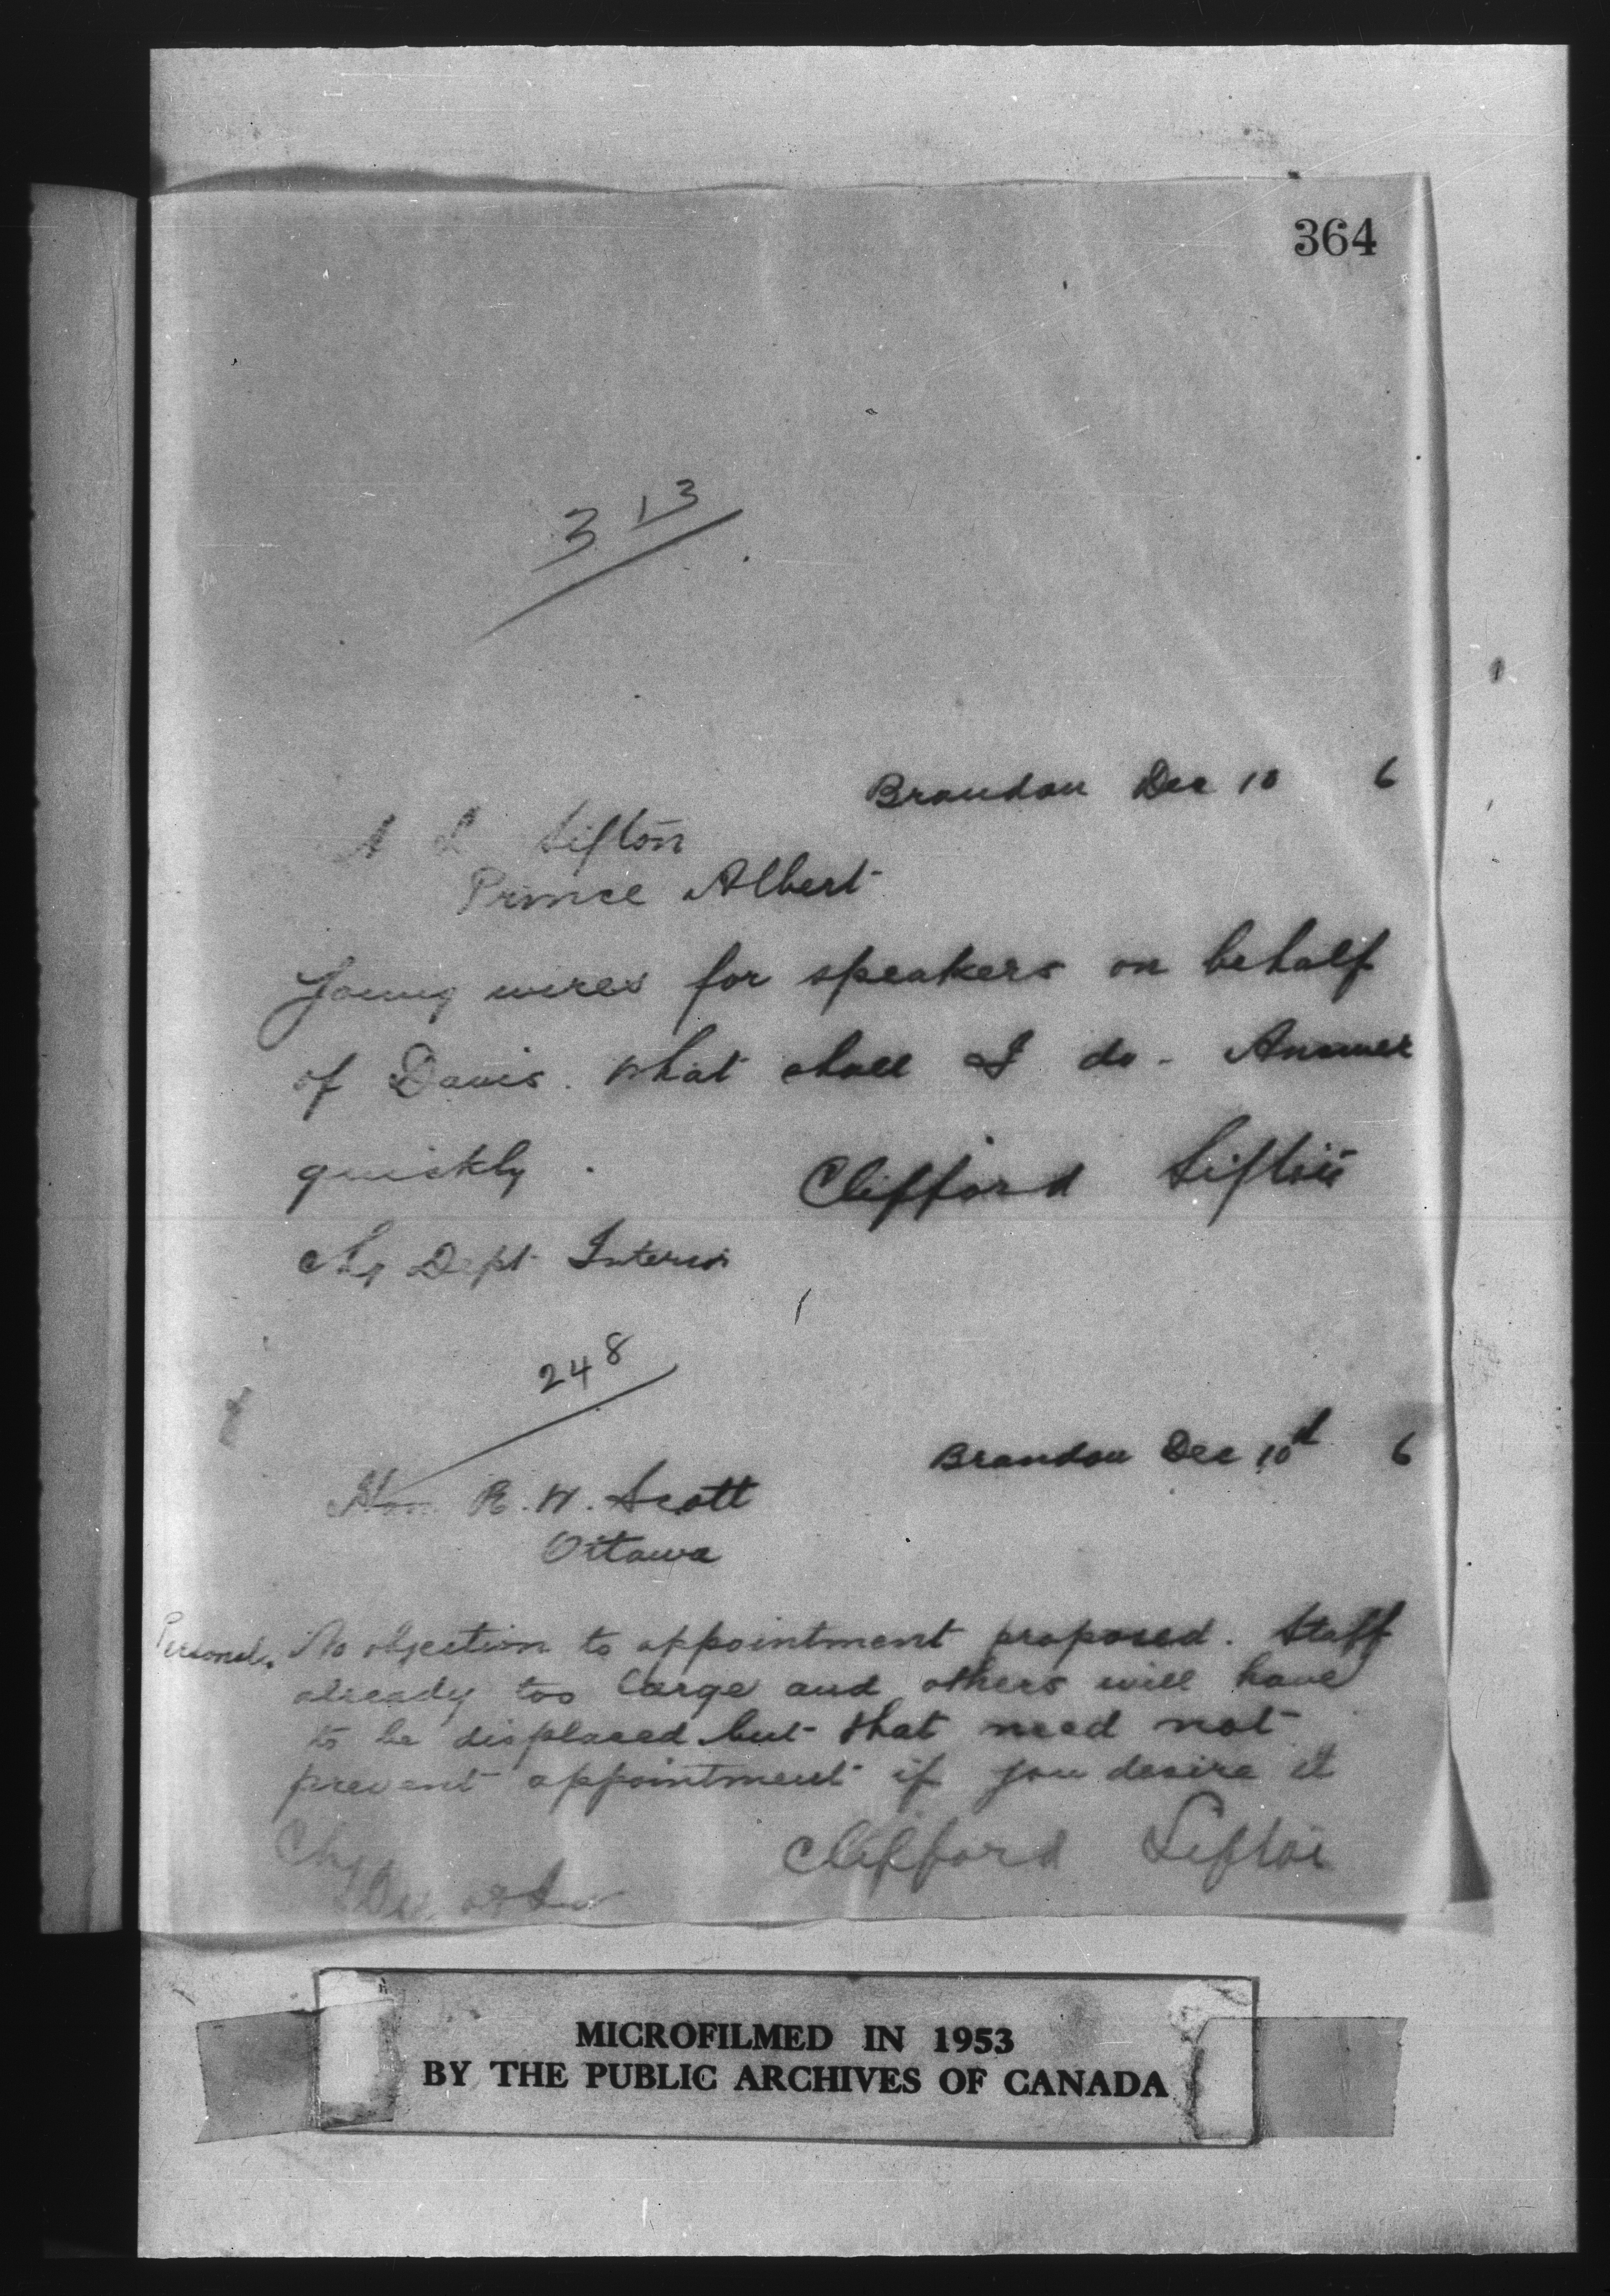 364
313
Brandon Dec 10 6
A L Sifton
Prince Albert
Young wires for speakers on behalf
of Davis. What shall I do - Answer
quickly.
Clifford Sifton
Chg Dept Interior
248
Brandon Dec 10th 6
Hon R. W. Scott
Ottawa
Personal. No objection to appointment proposed. Staff
already too large and others will have
to be displaced but that need not
prevent appointment if you desire it
Clifford Sifton
Chg
MICROFILMED IN 1953
BY THE PUBLIC ARCHIVES OF CANADA